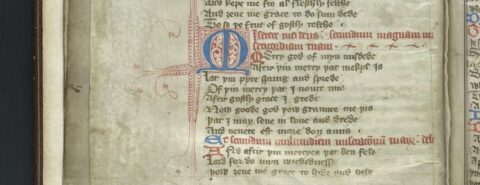 And kepe me fro al fleschly felthe
And zeue me grace to do sum dede
of gostly
Miserere mei deus: secundum magnam mi
sericordiam tuam
Mercy god of myn misdede
Aftir þin mercy þat mekyl is
Lat þin pyte spring and sprede
Of þin mercy þat I nouzt mis
Aftir gostly grace I grede
Now goode god þow graunte me þis
Þat I may leue in loue and drede
And neuere eft more don amis
Et secundum multitudinem miseracionum tuarum dele
And aftir þin mercyes þat ben fele
Lord for do myn wickidnesse
zeue me grace to hide and hely